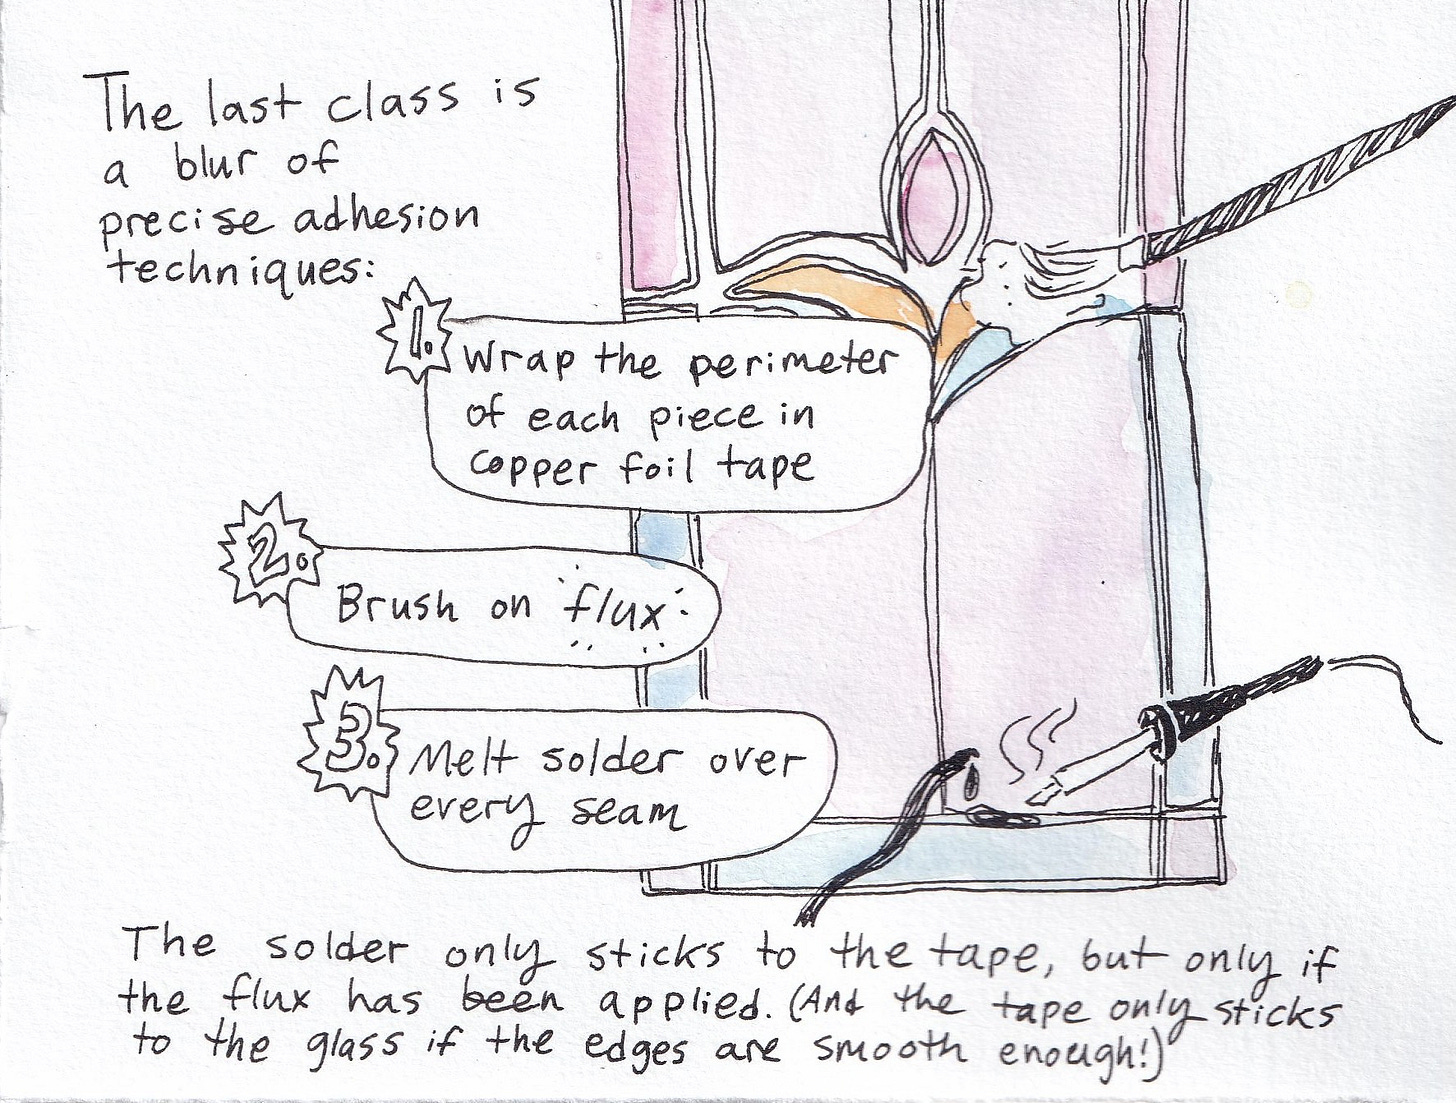 The last class is
a blur of
precise adhesion
techniques:
1.
Wrap the perimeter
of each piece in
copper foil tape
2.
Brush on flux
3.
Melt solder over
every seam
The solder only sticks to the tape, but only if
the flux has been applied. (And the tape only sticks
to the glass if the edges are smooth enough!)